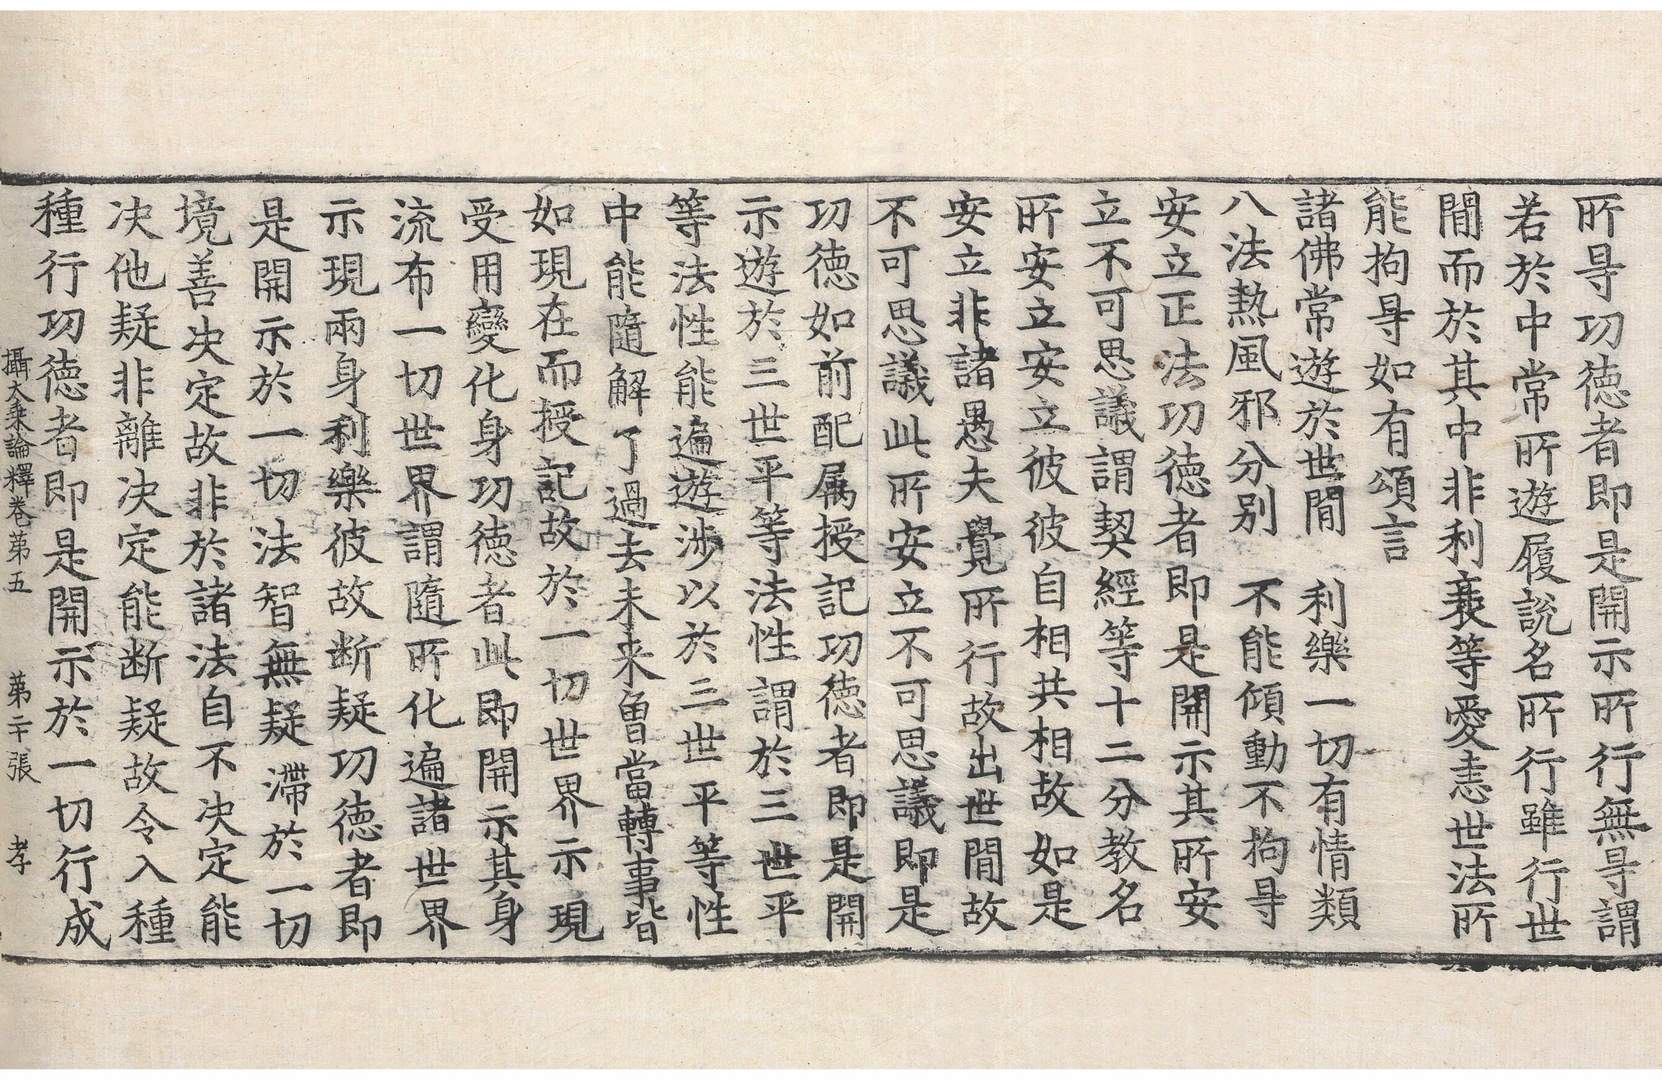 所㝵功徳者即是開示所行無㝵謂
若於中常所遊履說名所行雖行世
間而於其中非利衰等愛恚世法所
能拘㝵如有頌言
諸佛常遊於世間　利樂一切有情類
八法熱風邪分別　不能傾動不拘㝵
安立正法功徳者即是開示其所安
立不可思議謂契經等十二分教名
所安立安立彼彼自相共相故如是
安立非諸愚夫覺所行故出世間故
不可思議此所安立不可思議即是
功徳如前配属授記功徳者即是開
示遊於三世平等法性謂於三世平
等法性能遍遊涉以於三世平等性
中能隨解了過去未来曾當轉事皆
如現在而授記故於一切世界示現
受用變化身功徳者此即開示其身
流布一切世界謂隨所化遍諸世界
示現兩身利樂彼故断疑功徳者即
是開示於一切法智無疑滯於一切
境善决定故非於諸法自不决定能
决他疑非離决定能断疑故令入種
種行功徳者即是開示於一切行成
攝大乘論釋卷第五　第二十張　孝